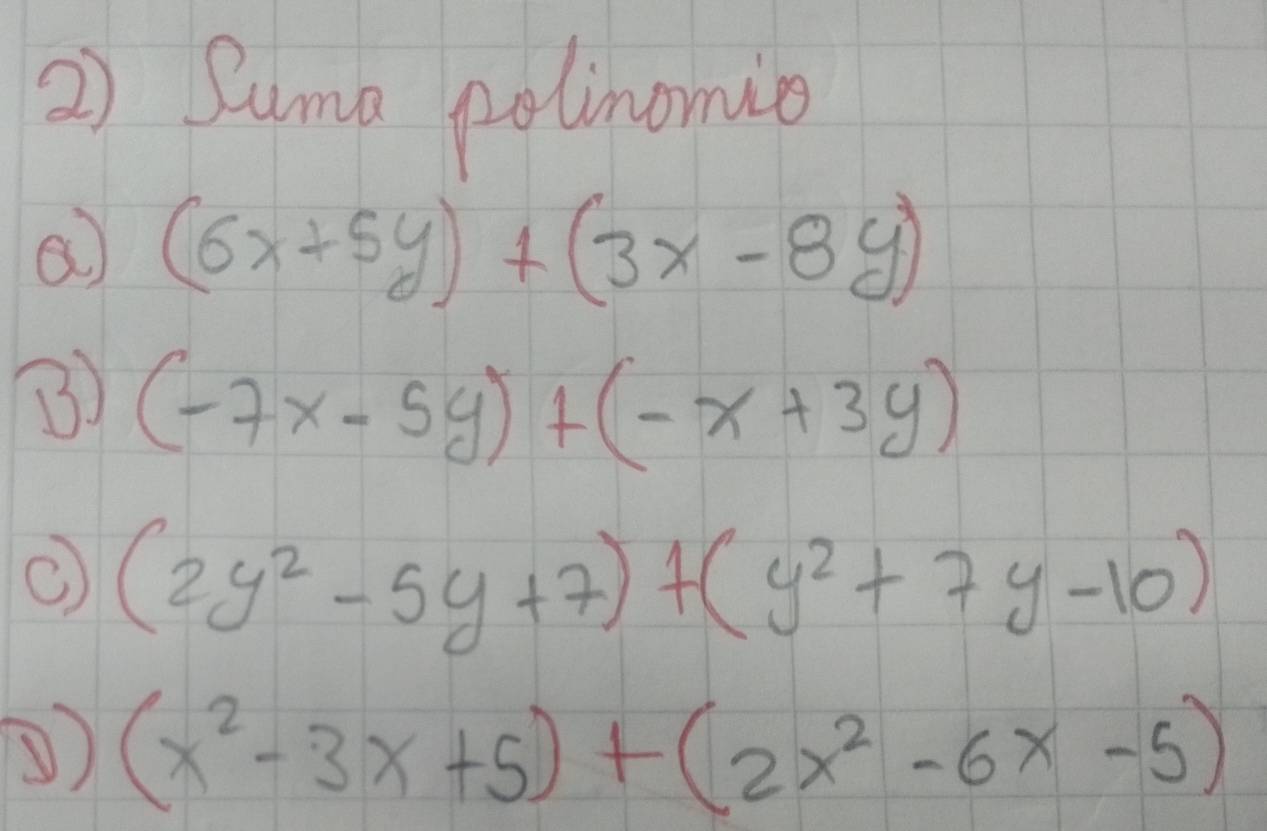 2) Suma polinomio
a) (6x+5y) + (3x - 8y)
B) (-7x - 5y) + (- x + 3y)
C) (2y² - 5y + 7) + (y² + 7y - 10)
D) (x² - 3x + 5) + (2x² - 6x - 5)